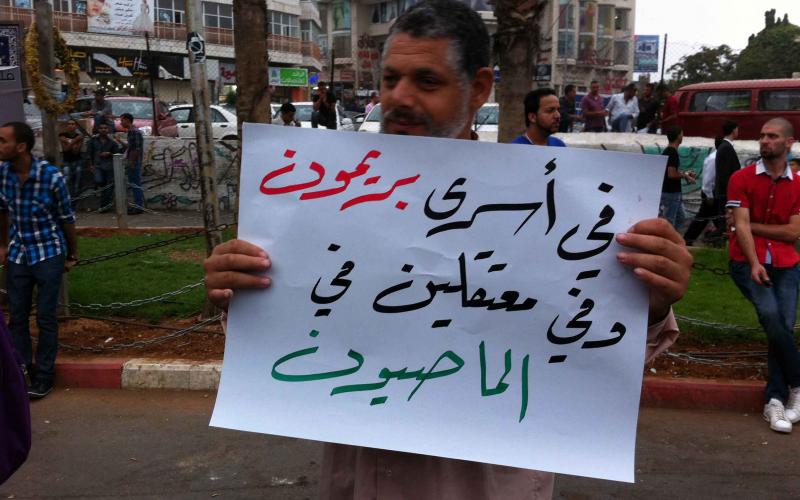 في أسرى بريمون
وفي معتقلين في
الماصيون